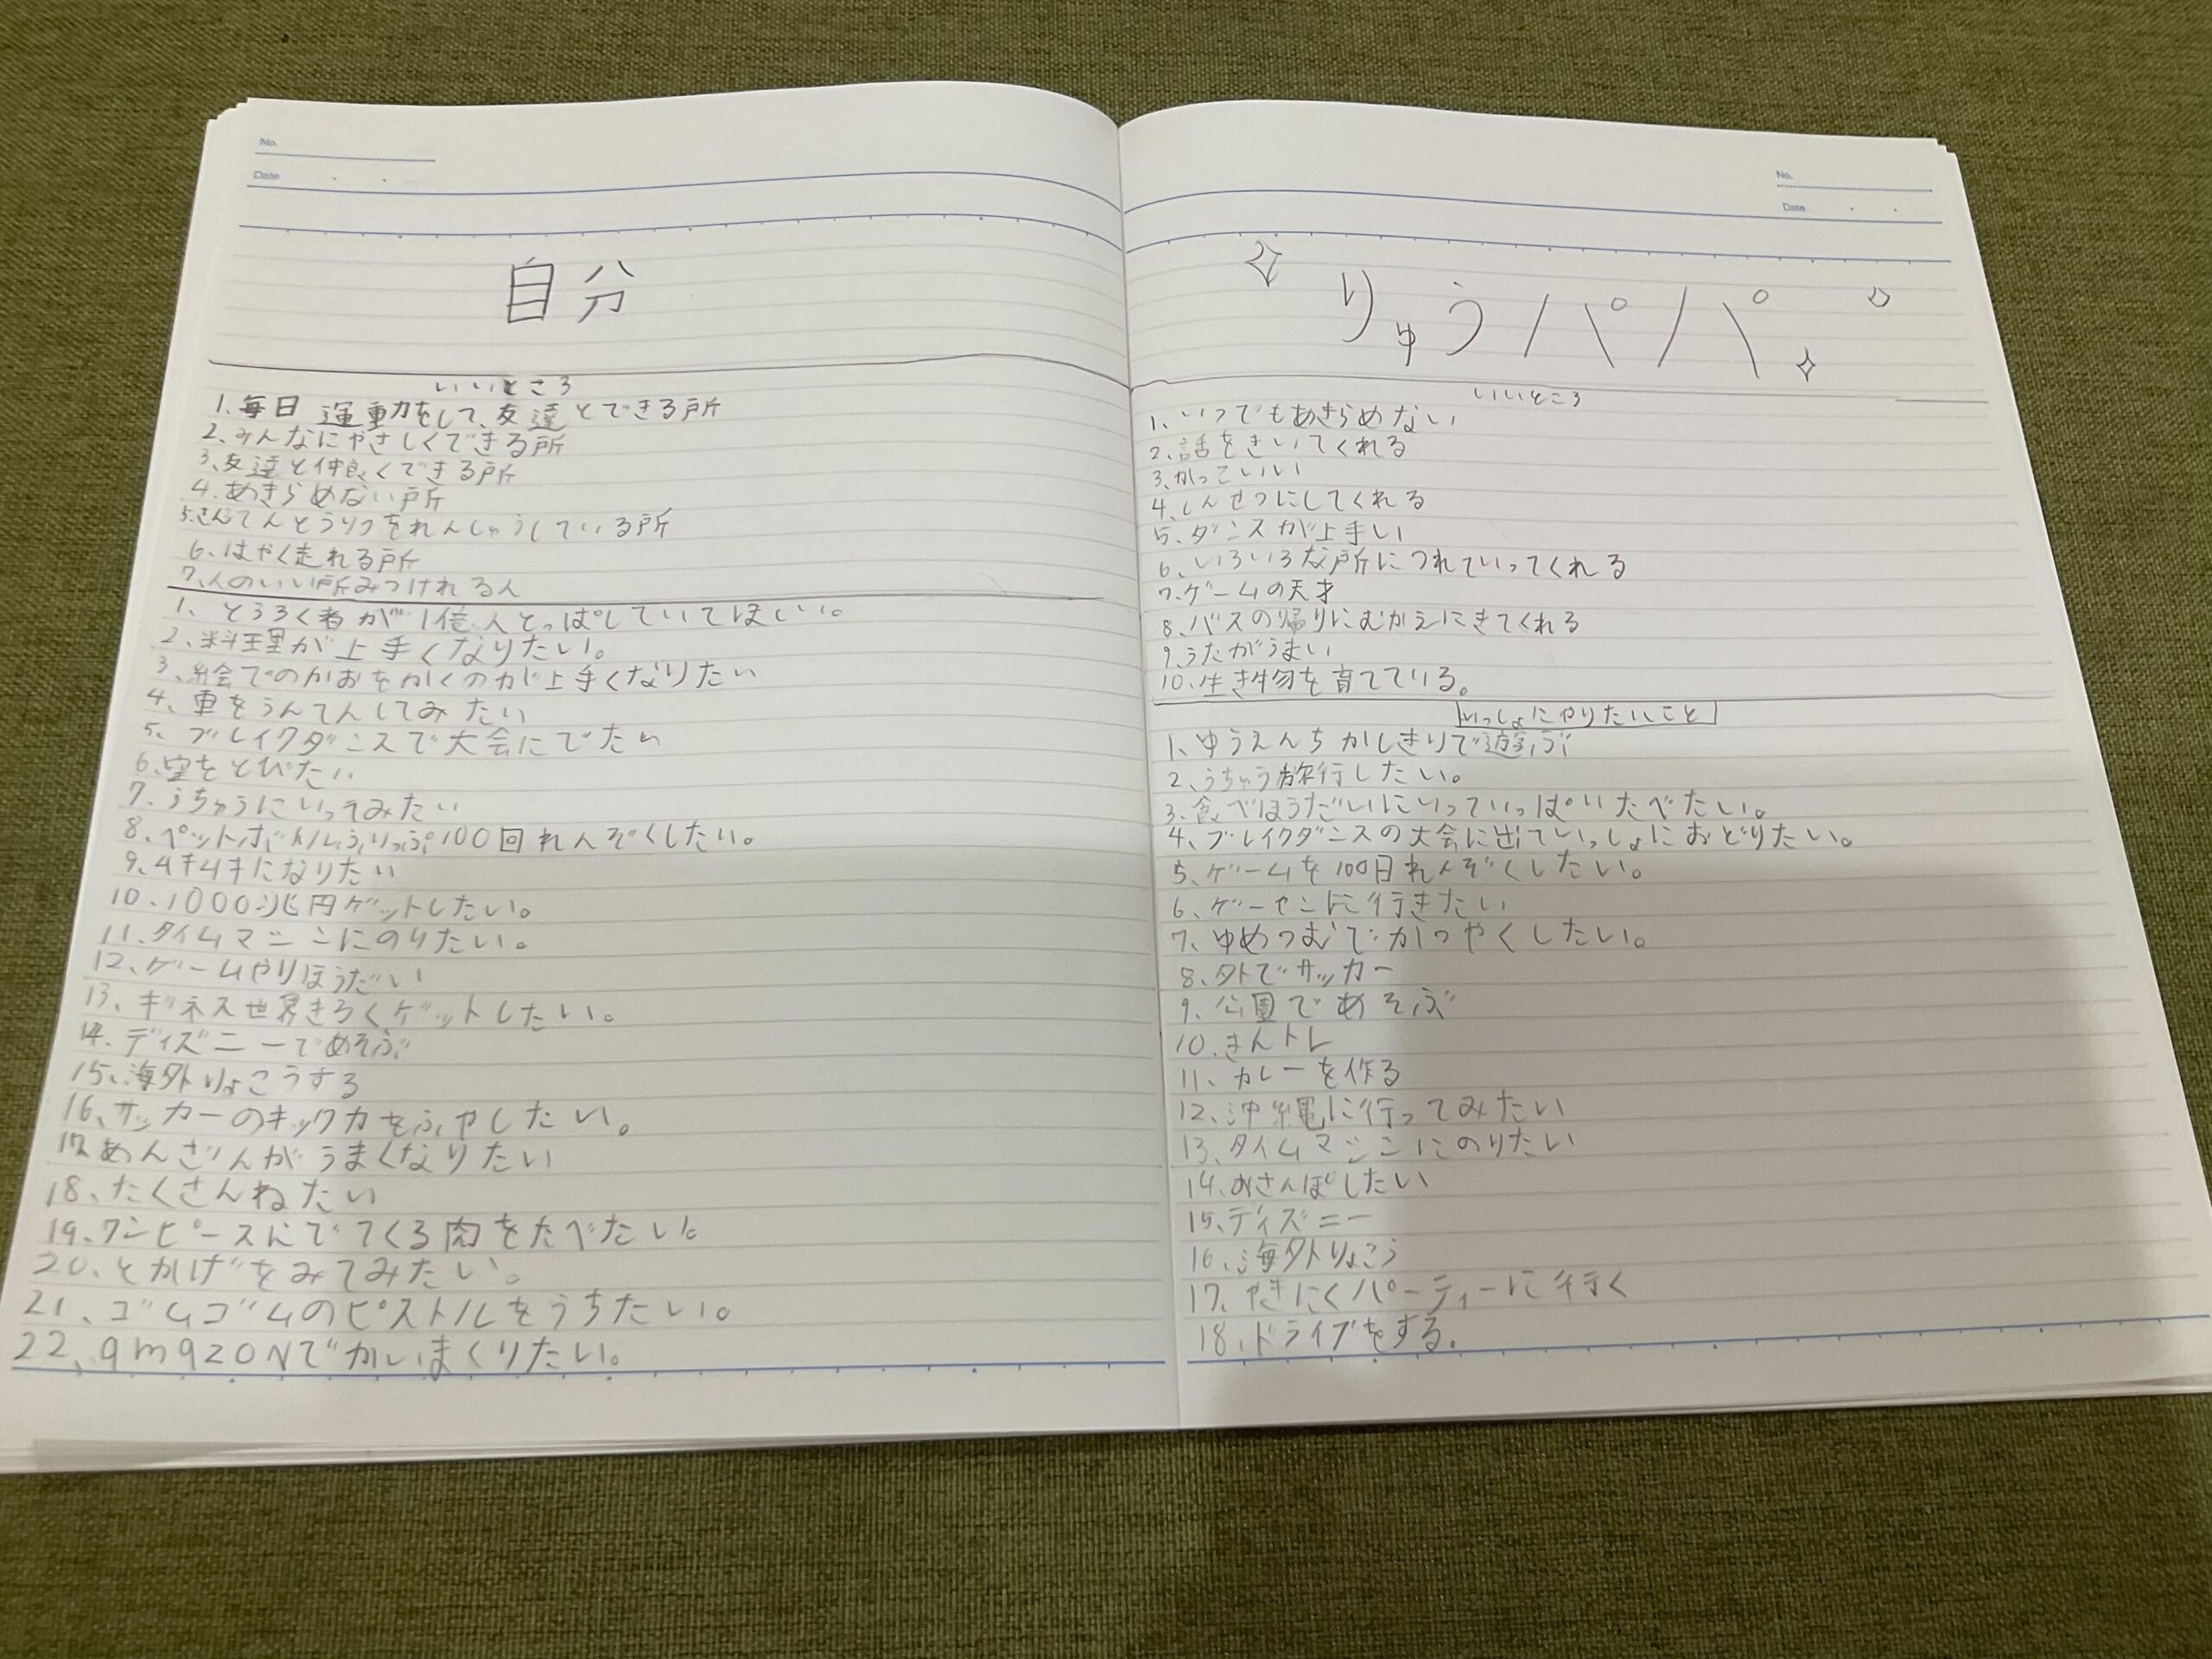 No.
Date
自分
いいところ
1、毎日 運動をして、友達とできる所
2、みんなにやさしくできる所
3、友達と仲良くできる所
4、あきらめない所
5、さんてんとうりつをれんしゅうしている所
6、はやく走れる所
7、人のいい所みつけれる人
1、とうろく者が1億人とっぱしていてほしい。
2、料理が上手くなりたい。
3、絵でのかおをかくのが上手くなりたい
4、車をうんてんしてみたい
5、ブレイクダンスで大会にでたい
6、空をとびたい
7、うちゅうにいってみたい
8、ペットボトルふりっぷ100回れんぞくしたい。
9、ムキムキになりたい
10、1000兆円ゲットしたい。
11、タイムマシンにのりたい。
12、ゲームやりほうだい
13、ギネス世界きろくゲットしたい。
14、ディズニーであそぶ
15、海外りょこうする
16、サッカーのキック力をふやしたい。
17、あんざんがうまくなりたい
18、たくさんねたい
19、ワンピースにでてくる肉をたべたい。
20、とかげをみてみたい。
21、ゴムゴムのピストルをうちたい。
22、amazoNでかいまくりたい。
No.
Date
りゅうパパ
いいところ
1、いつでもあきらめない
2、話をきいてくれる
3、かっこいい
4、しんせつにしてくれる
5、ダンスが上手い
6、いろいろな所につれていってくれる
7、ゲームの天才
8、バスの帰りにむかえにきてくれる
9、うたがうまい
10、生き物を育てている。
いっしょにやりたいこと
1、ゆうえんちかしきりで遊ぶ
2、うちゅう旅行したい。
3、食べほうだいにいっていっぱいたべたい。
4、ブレイクダンスの大会に出ていっしょにおどりたい。
5、ゲームを100日れんぞくしたい。
6、ゲーセンに行きたい
7、ゆめつむでかつやくしたい。
8、外でサッカー
9、公園であそぶ
10、きんトレ
11、カレーを作る
12、沖縄に行ってみたい
13、タイムマシンにのりたい
14、おさんぽしたい
15、ディズニー
16、海外りょこう
17、やきにくパーティーに行く
18、ドライブをする。